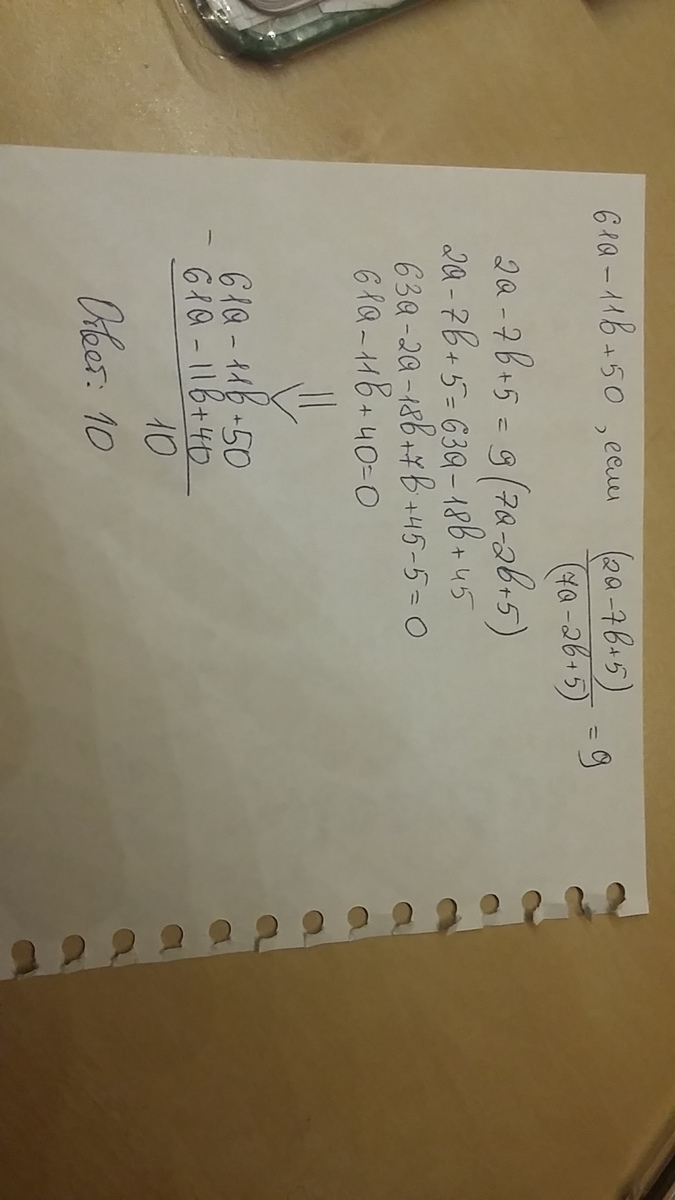 61a - 11b + 50 , если (2a - 7b + 5) / (7a - 2b + 5) = 9
2a - 7b + 5 = 9 (7a - 2b + 5)
2a - 7b + 5 = 63a - 18b + 45
63a - 2a - 18b + 7b + 45 - 5 = 0
61a - 11b + 40 = 0
⇓
- 61a - 11b + 50
61a - 11b + 40
10
Ответ: 10